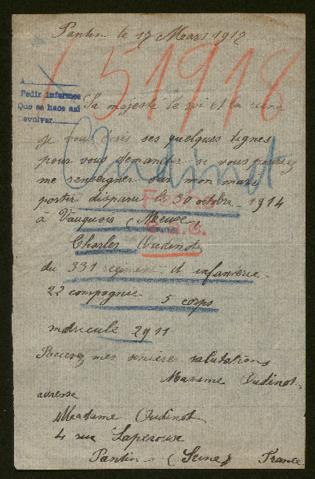 Pantin le 17 Mars 1917
A
Pedir informes
Que se hace así
evolver.
151918
Sa majeste le roi et la reine
je vous ses quelques lignes
pour vous demander si vous pouvez
me renseigner sur mon mari
porter disparu le 30 octobre 1914
à Vauquois (Meuse)
Charles Oudinot
Oudinot
du 331 regiment d infanterie
22 compagnie 5 corps
matricule 2911
Recevez mes sincères salutations
Madame Oudinot
adresse
Madame Oudinot
4 rue Laperouse
Pantin (Seine) France